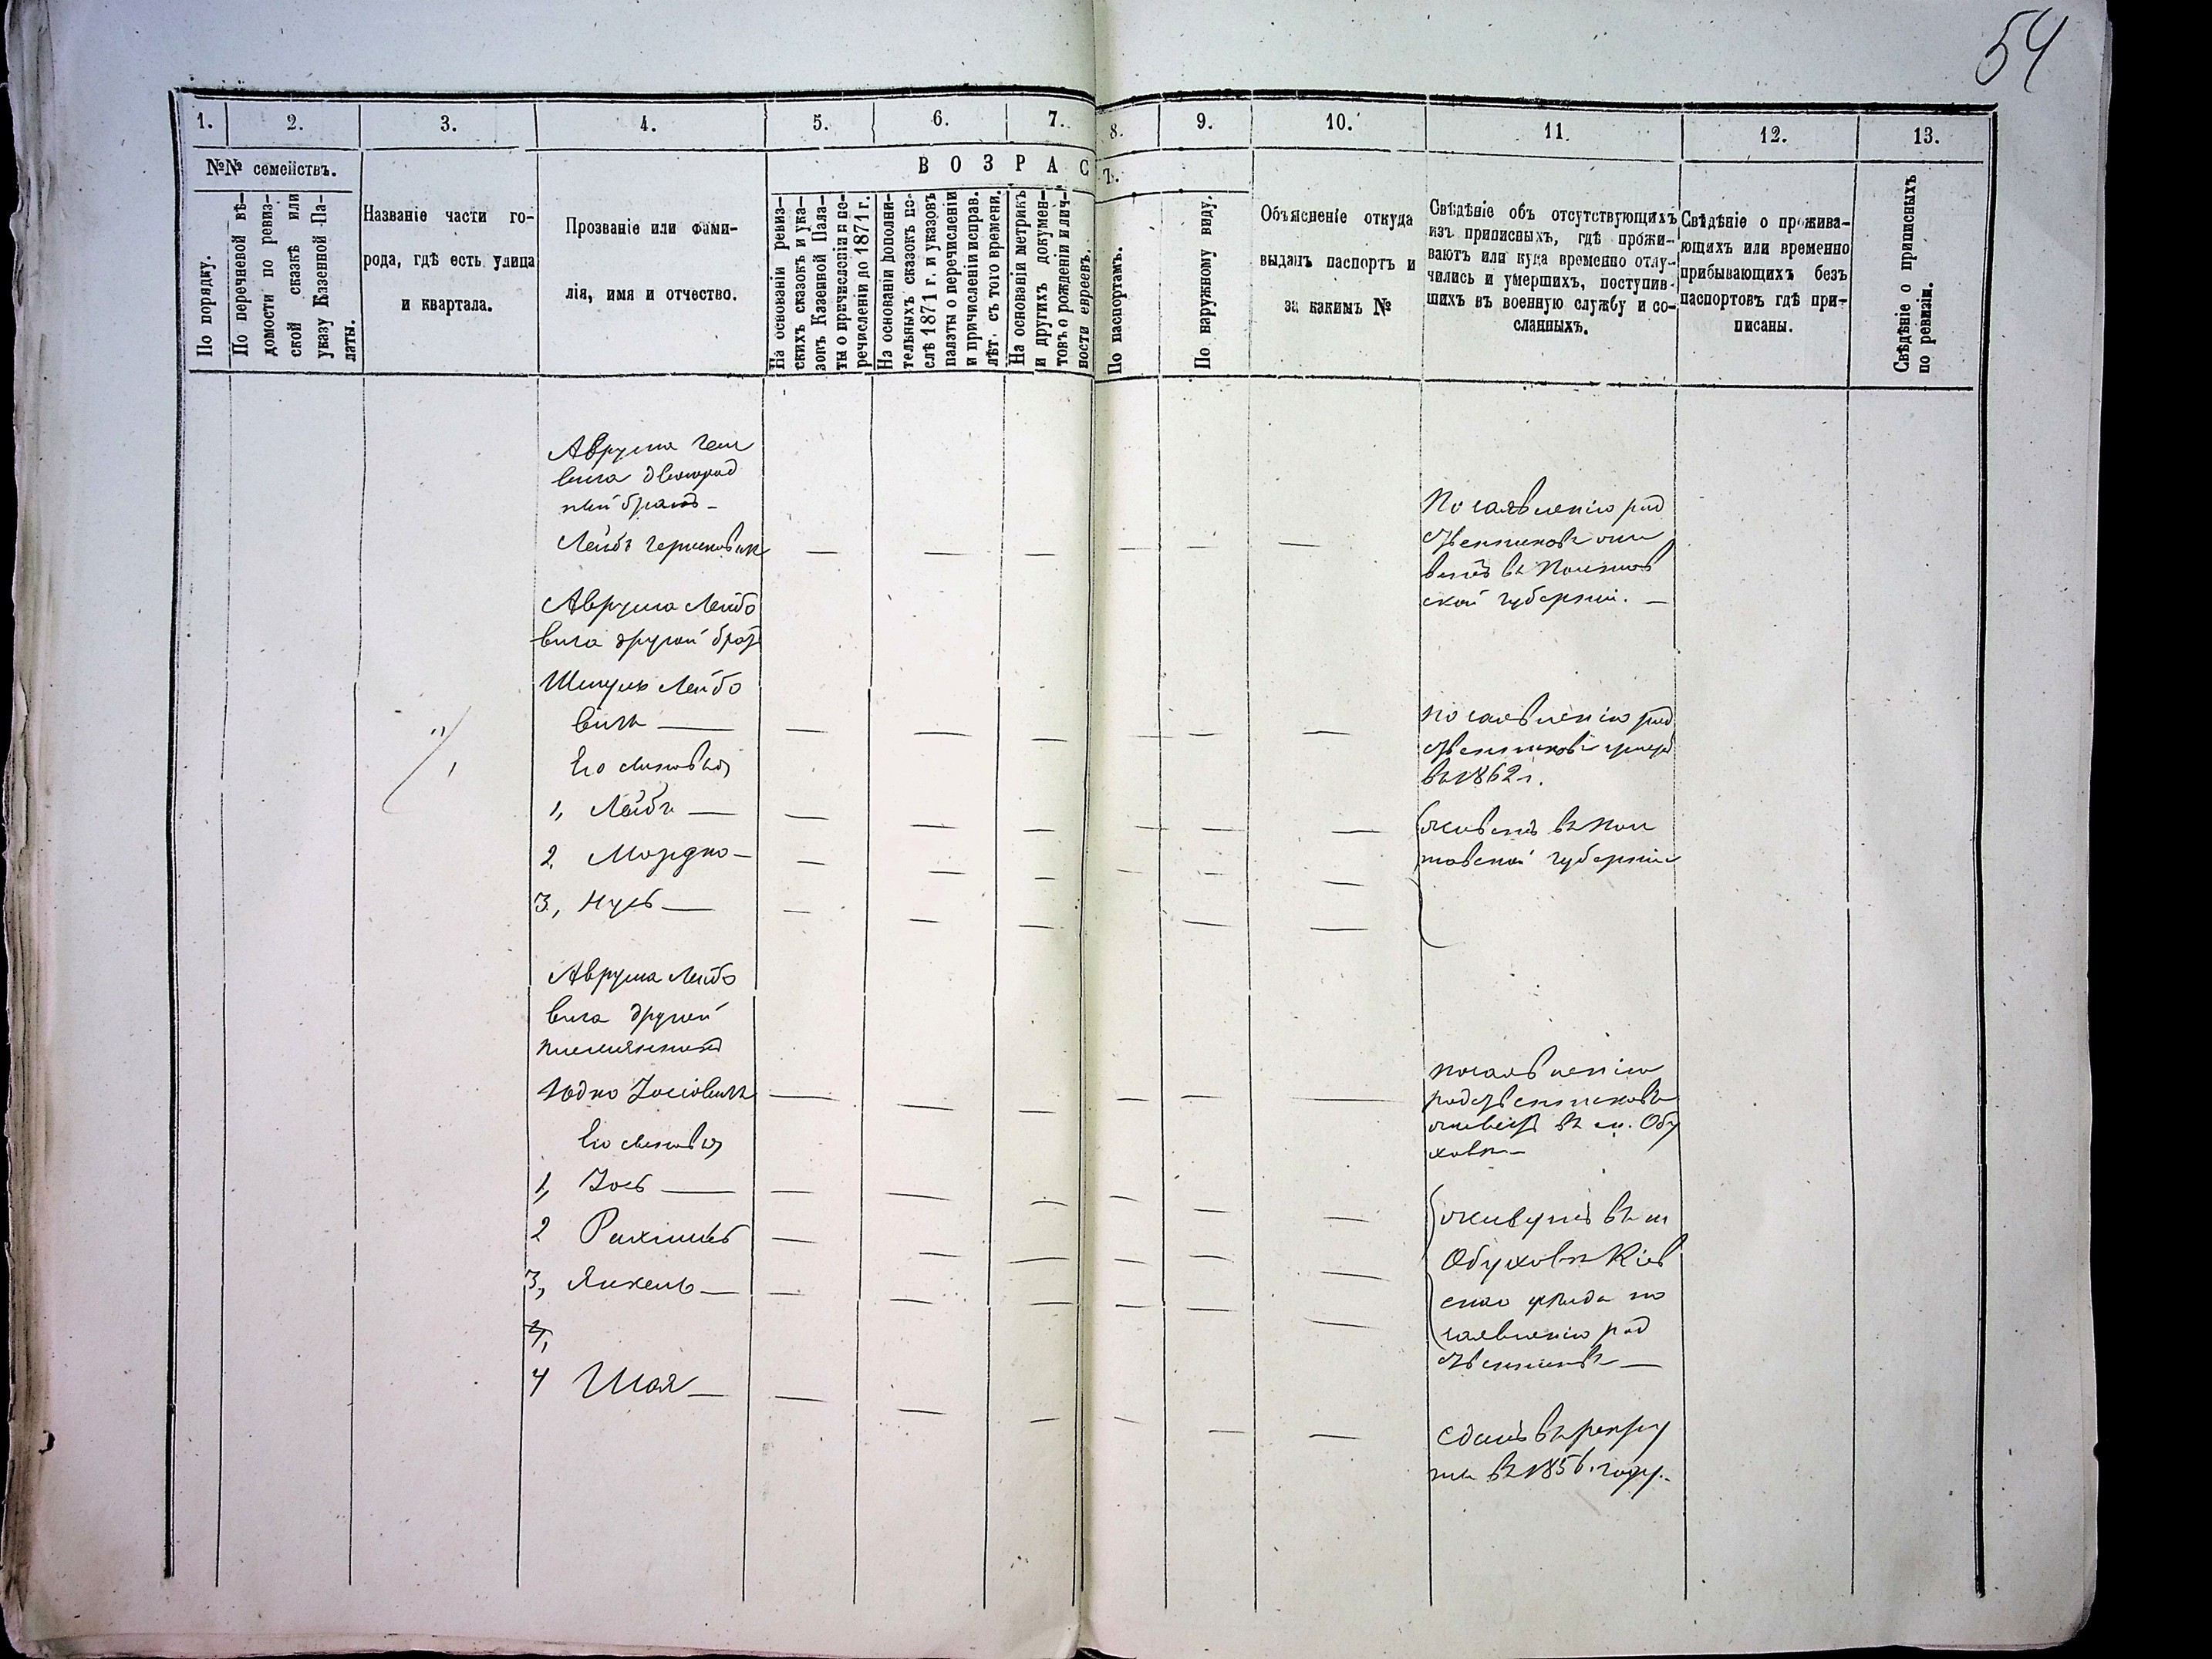 54
1. 2. 3. 4. 5. 6. 7. 8. 9. 10. 11. 12. 13.
№№ семействъ.
По порядку.
По перечневой вѣ-
домости по ревиз-
ской сказкѣ или
указу Казенной Па-
латы.
Названіе части го-
рода, гдѣ есть улица
и квартала.
Прозваніе или фами-
лія, имя и отчество.
ВОЗРАСТ.
На основаніи ревиз-
скихъ сказокъ и ука-
зовъ Казенной Пала-
ты о причисленіи и пе-
речисленіи до 1871 г.
На основаніи дополни-
тельныхъ сказокъ по-
слѣ 1871 г. и указовъ
палаты о перечисленіи
и причисленіи исправ.
лѣт. съ того времени.
На основаніи метрикъ
и другихъ докумен-
товъ о рожденіи и лич-
ности евреевъ.
По паспортамъ.
По наружному виду.
Объясненіе откуда
выданъ паспортъ и
за какимъ №
Свѣдѣніе объ отсутствующихъ
изъ приписныхъ, гдѣ прожи-
ваютъ или куда временно отлу-
чились и умершихъ, поступив-
шихъ въ военную службу и со-
сланныхъ.
Свѣдѣніе о прожива-
ющихъ или временно
прибывающихъ безъ
паспортовъ гдѣ при-
писаны.
Свѣдѣніе о приписныхъ
по ревизіи.
Аврума
вича двоюрод
ный братъ -
Лейбъ Гершковичъ
По заявленію род
ственниковъ жи
ветъ въ Полтав
ской губерніи. —
Аврума Лейбо
вича другой братъ
Шмуль Лейбо
вичъ —
по заявленію род
ственниковъ умеръ
въ 1862 г.
Его сыновья
1, Лейбъ —
2, Мордко —
3, Нусь —
живетъ въ Пол
тавской губерніи
Аврума Лейбо
вича другой
племянникъ
Юдко Іосіовичъ
по заявленію
родственниковъ
живетъ въ м. Обу
ховкѣ —
Его сыновья
1, Іось —
2 Рахмиль
3, Янкель —
4,
живутъ въ м
Обуховкѣ Кіев
скаго уѣзда по
заявленію род
ственниковъ —
4 Шая —
Сданъ въ рекру
ты въ 1856 году. -